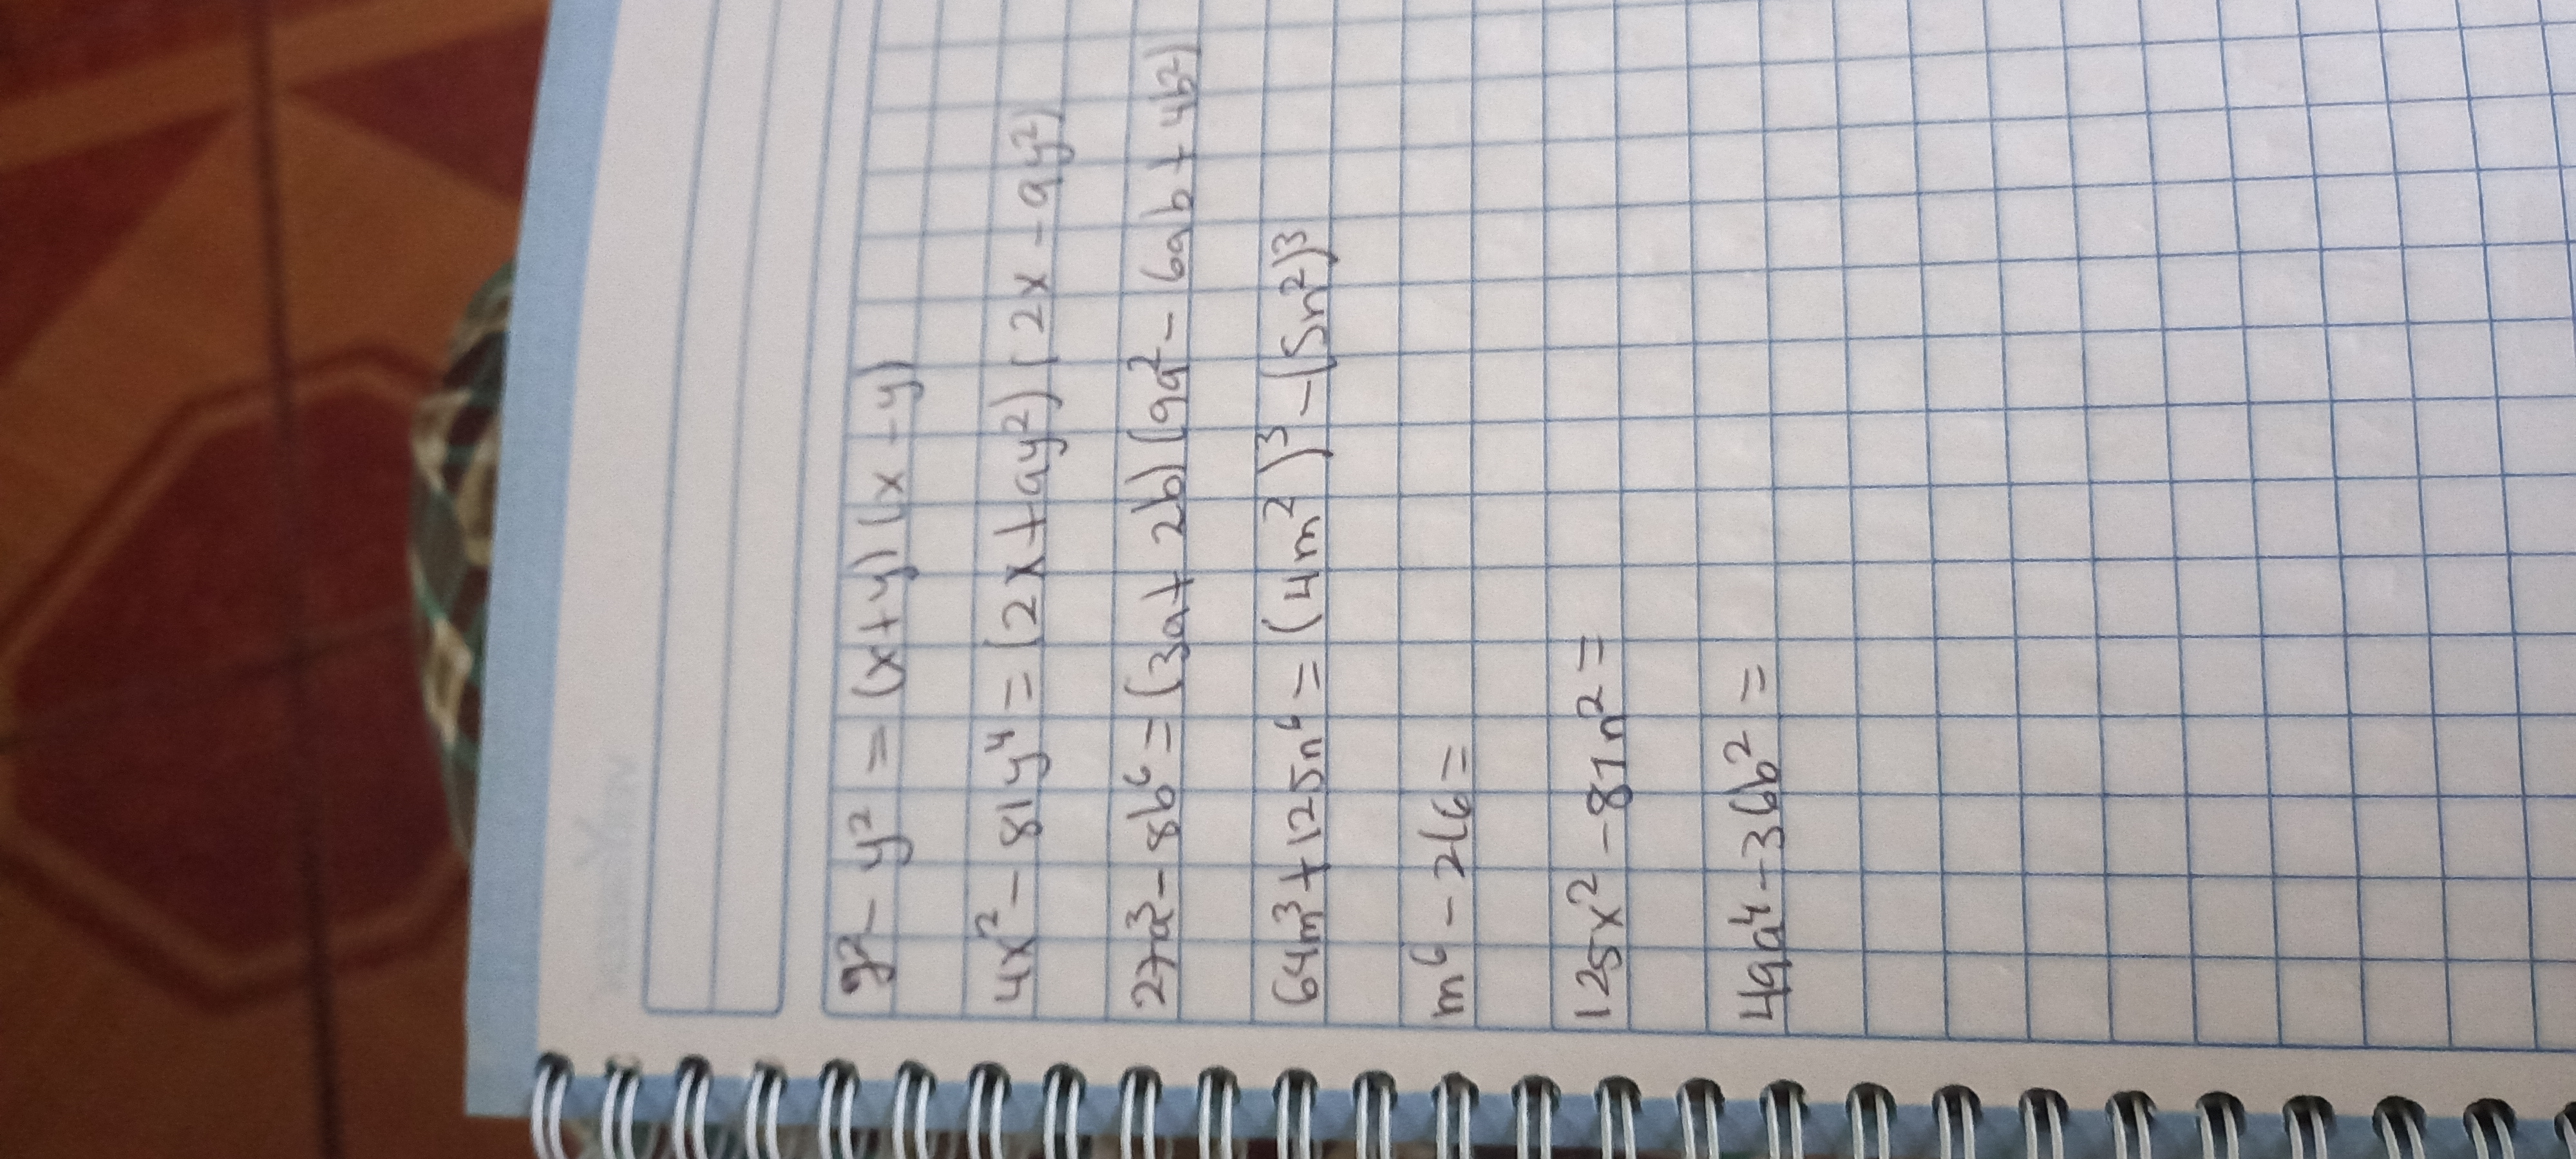 x² - y² = (x+y) (x - y)
4x² - 81y⁴ = (2x + 9y²) (2x - 9y²)
27a³ - 8b⁶ = (3a + 2b) (9a² - 6ab + 4b²)
64m³ + 125n⁶ = (4m²)³ - (5n²)³
m⁶ - 216 =
125x² - 81n² =
49a⁴ - 36b² =